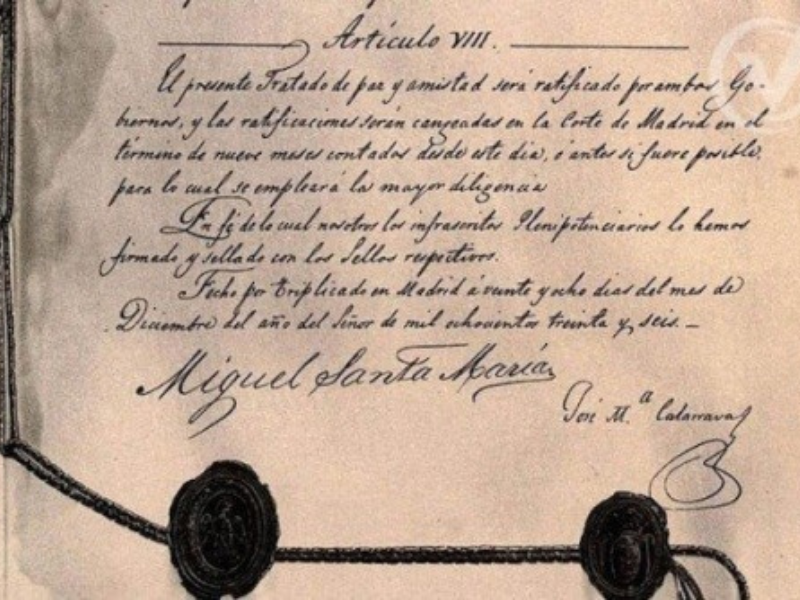 Artículo VIII.
El presente Tratado de paz y amistad será ratificado por ambos Go-
biernos, y las ratificaciones serán cangeadas en la Corte de Madrid en el
término de nueve meses contados desde este dia, ó antes si fuere posible,
para lo cual se empleará la mayor diligencia
En fé de lo cual nosotros los infrascritos Plenipotenciarios lo hemos
firmado y sellado con los Sellos respectivos.
Fecho por triplicado en Madrid á veinte y ocho dias del mes de
Diciembre del año del Señor de mil ochocientos treinta y seis. —
Miguel Santa María
José M.ª Calatrava